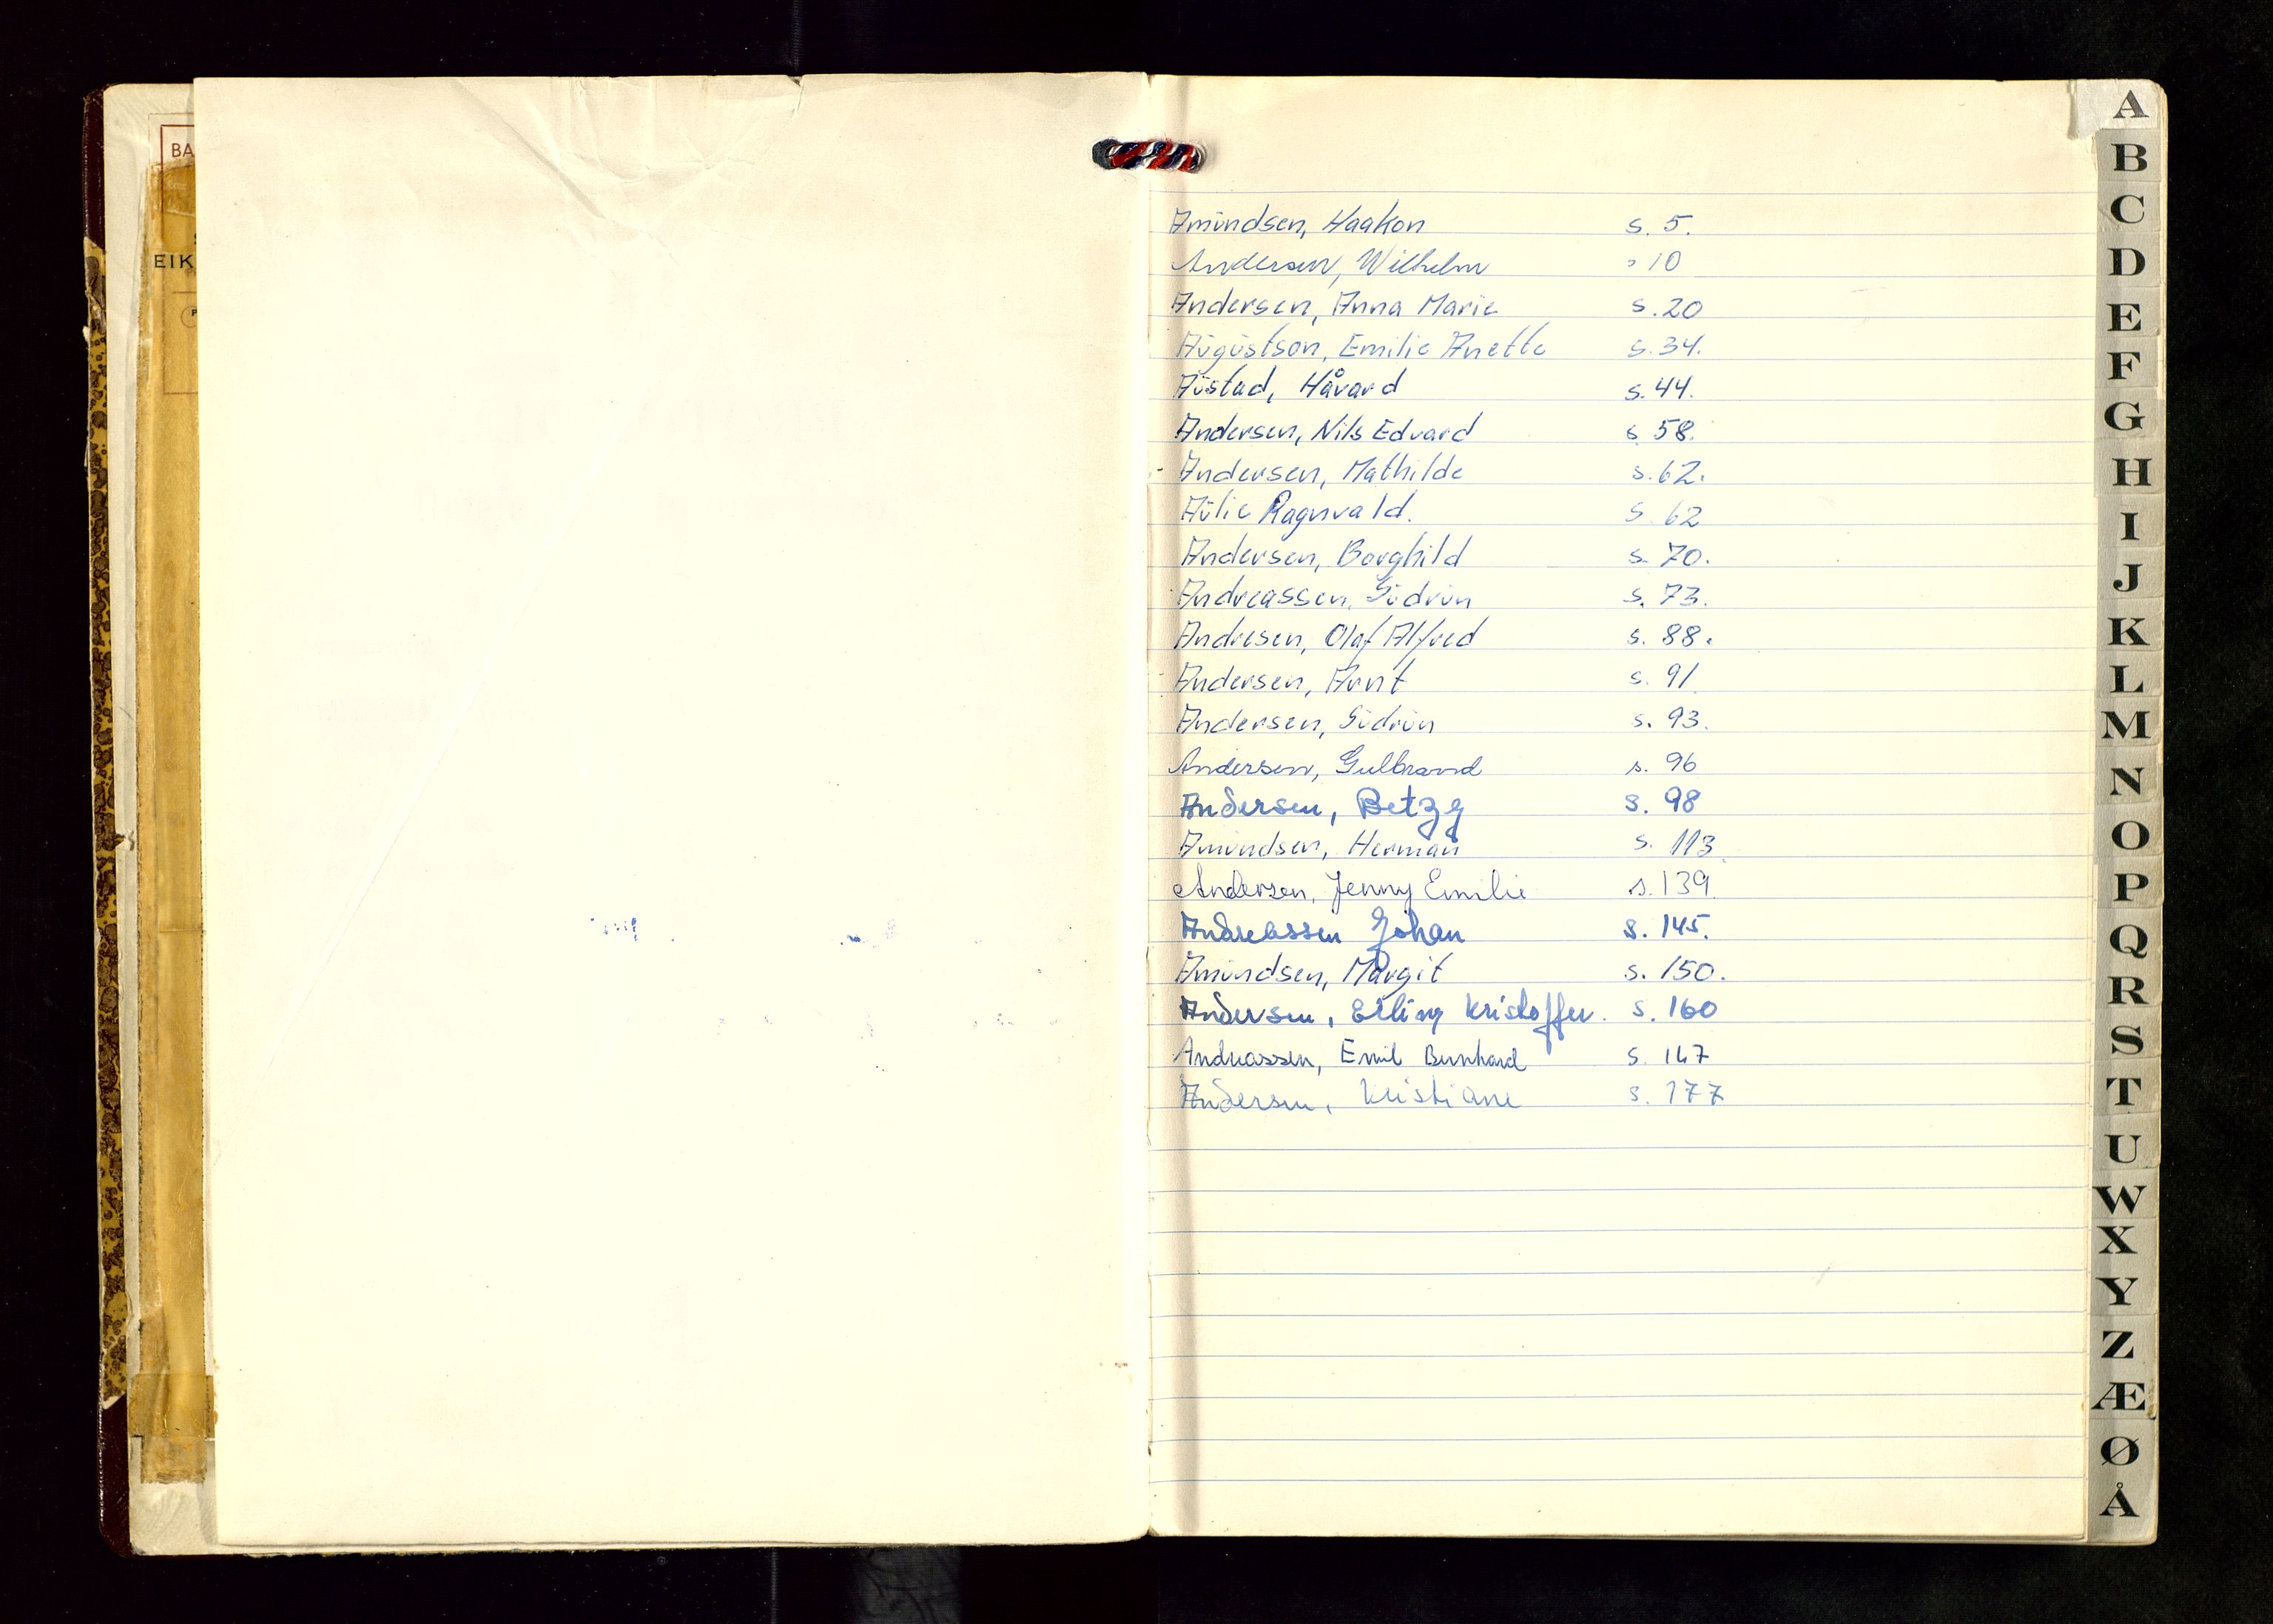 BA
EIK
Amundsen, Haakon s. 5.
Andersen, Wilhelm " 10
Andersen, Anna Marie s. 20
Augustson, Emilie Anette s. 34.
Austad, Håvard s. 44.
Andersen, Nils Edvard s. 58.
Andersen, Mathilde s. 62.
Aulie Ragnvald. s. 62
Andersen, Borghild s. 70.
Andreassen, Gudrun s. 73.
Andresen, Olaf Alfred s. 88.
Andersen, Arnt s. 91
Andersen, Gudrun s. 93.
Andersen, Gulbrand s. 96
Andersen, Betzy s. 98
Amundsen, Herman s. 113.
Andersen, Jenny Emilie s. 139.
Andreassen Johan s. 145.
Amundsen, Margit s. 150.
Andersen, Erling Kristoffer. s. 160
Andreassen, Emil Bernhard s. 167
Andersen, Kristiane s. 177
A
B
C
D
E
F
G
H
I
J
K
L
M
N
O
P
Q
R
S
T
U
W
X
Y
Z
Æ
Ø
Å